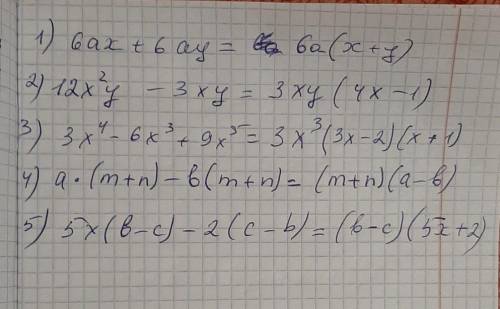 1) 6ax + 6ay = 6a(x+y)
2) 12x²y - 3xy = 3xy(4x-1)
3) 3x⁴ - 6x³ + 9x⁵ = 3x³(3x-2)(x+1)
4) a·(m+n) - в(m+n) = (m+n)(a-в)
5) 5x(в-c) - 2(c-в) = (в-c)(5x+2)